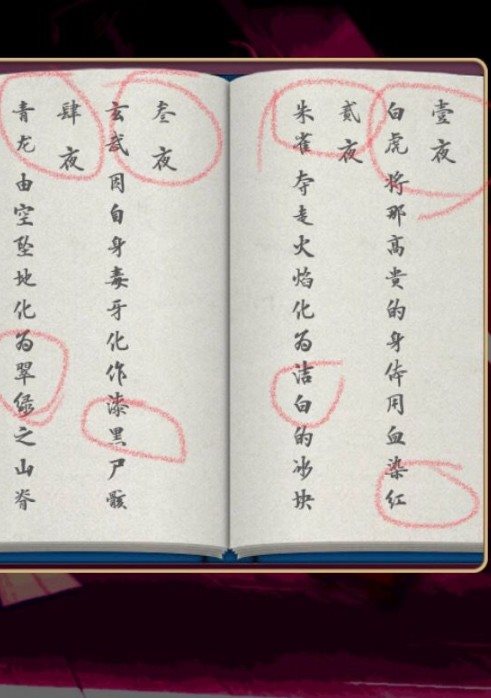 壹夜
白虎将那高贵的身体用血染红
贰夜
朱雀夺走火焰化为洁白的冰块
叁夜
玄武因自身毒牙化作漆黑尸骸
肆夜
青龙由空坠地化为翠绿之山脊